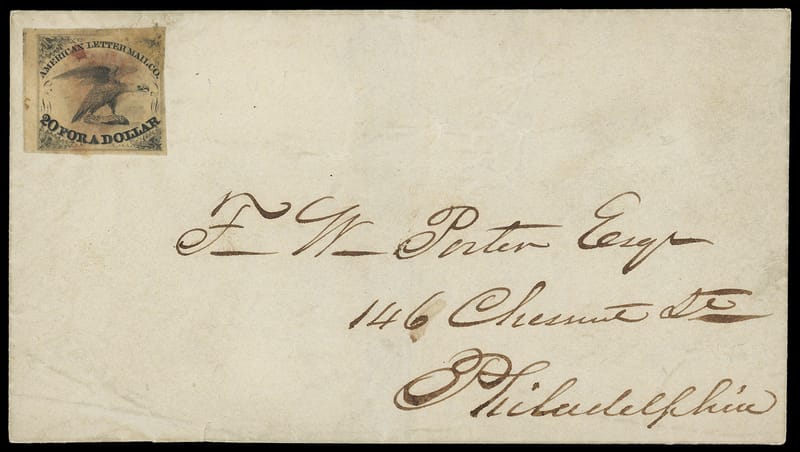 AMERICAN LETTER MAIL CO.
20 FOR A DOLLAR
F W Porter Esqr
146 Chesnut St
Philadelphia